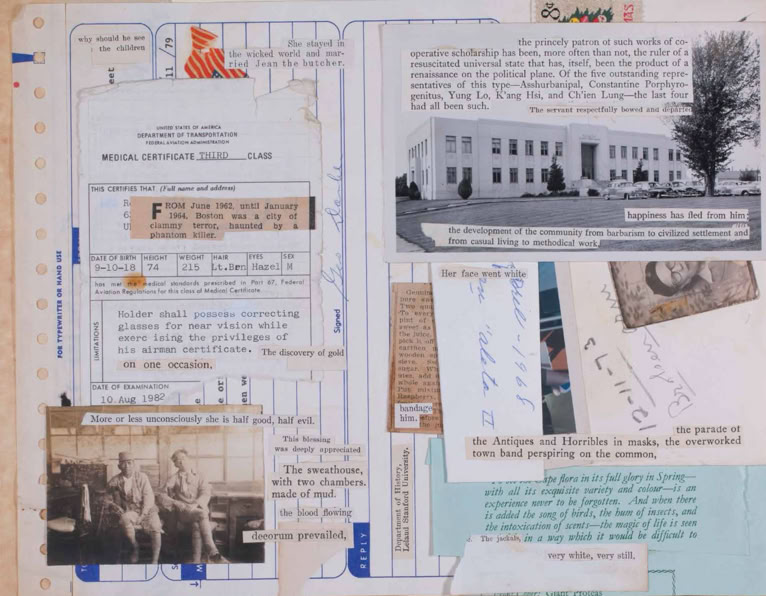 why should he see
the children
11 / 79
She stayed in
the wicked world and mar-
ried Jean the butcher.
UNITED STATES OF AMERICA
DEPARTMENT OF TRANSPORTATION
FEDERAL AVIATION ADMINISTRATION
MEDICAL CERTIFICATE THIRD CLASS
THIS CERTIFIES THAT (Full name and address)
FROM June 1962, until January
1964, Boston was a city of
clammy terror, haunted by a
phantom killer.
DATE OF BIRTH HEIGHT WEIGHT HAIR EYES SEX
9-10-18 74 215 Lt.Brn Hazel M
has met the medical standards prescribed in Part 67, Federal
Aviation Regulations for this class of Medical Certificate.
LIMITATIONS
Holder shall possess correcting
glasses for near vision while
exercising the privileges of
his airman certificate.
The discovery of gold
on one occasion,
DATE OF EXAMINATION
10.Aug 1982
Signed
FOR TYPEWRITER OR HAND USE
More or less unconsciously she is half good, half evil.
This blessing
was deeply appreciated
The sweathouse,
with two chambers,
made of mud.
the blood flowing
decorum prevailed,
REPLY
the princely patron of such works of co-
operative scholarship has been, more often than not, the ruler of a
resuscitated universal state that has, itself, been the product of a
renaissance on the political plane. Of the five outstanding repre-
sentatives of this type—Asshurbanipal, Constantine Porphyro-
genitus, Yung Lo, K'ang Hsi, and Ch'ien Lung—the last four
had all been such.
The servant respectfully bowed and departed
happiness has fled from him;
the development of the community from barbarism to civilized settlement and
from casual living to methodical work,
Her face went white
bandage
him.
Department of History,
Leland Stanford University.
12-11-73
the parade of
the Antiques and Horribles in masks, the overworked
town band perspiring on the common,
flora in its full glory in Spring—
with all its exquisite variety and colour—is an
experience never to be forgotten. And when there
is added the song of birds, the hum of insects, and
the intoxication of scents—the magic of life is seen
The jackals, in a way which it would be difficult to
very white, very still.
Giant Proteas